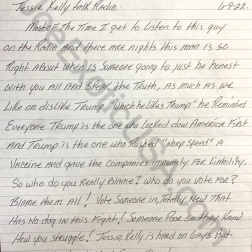 Jessie Kelly talk Radio. 6-9-22.
Most of The Time I get to Listen to this guy
on the Radio and there are nights this man is so
Right About when is Someone going to just be honest
with you All And Speak the Truth, as much as we
Like or dislike Trump, "which he likes Trump" he Reminded
Everyone Trump is the one who locked down America First
And Trump is the one who Rushed "warp speed" A
Vaccine and gave the companies immunity for Liability.
So who do you Really Blame? who do you vote For?
Blame them All! Vote Someone in, Totally New that
Has No dog in this Fight! Someone Poor So they Know
How you Struggle! Jessie Kelly is hard on Guys But